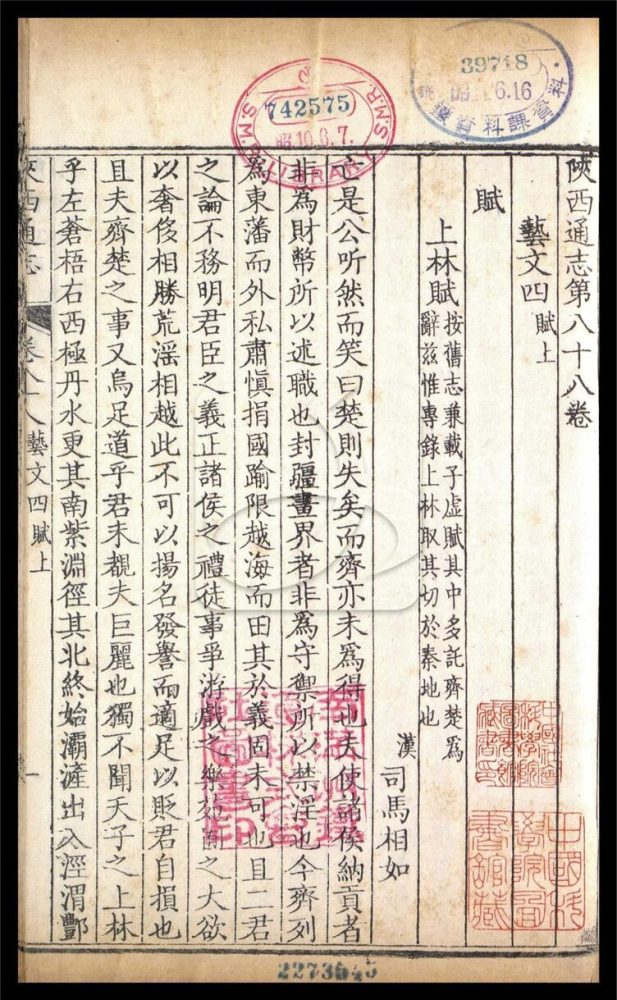 陝西通志第八十八卷
藝文四賦上
賦
上林賦按舊志兼載子虛賦其中多託齊楚爲
辭兹惟專錄上林取其切於秦地也
漢 司馬相如
亡是公听然而笑曰楚則失矣而齊亦未爲得也夫使諸侯納貢者
非爲財幣所以述職也封疆畫界者非爲守禦所以禁淫也今齊列
爲東藩而外私肅愼捐國踰限越海而田其於義固未可也且二君
之論不務明君臣之義正諸侯之禮徒事爭游戲之樂苑囿之大欲
以奢侈相勝荒淫相越此不可以揚名發譽而適足以貶君自損也
且夫齊楚之事又烏足道乎君未覩夫巨麗也獨不聞天子之上林
乎左蒼梧右西極丹水更其南紫淵徑其北終始灞滻出入涇渭酆
陝西通志 卷八十八 藝文四賦上 一
742575
昭10.6.7.
S.M.R. LIBRARY S.M.R.
39718
6.16
資料課
中國科
學院圖
書館藏
2273645